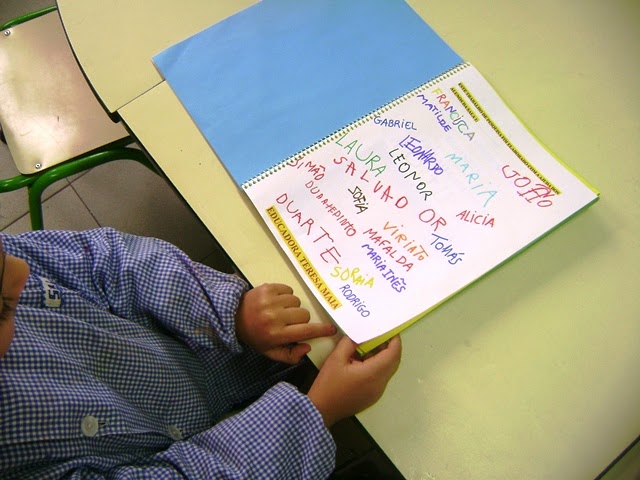 FRANCISCA
MATILDE
GABRIEL
LEONARDO
MARIA
JOÃO
LAURA
LEONOR
SIMÃO
SALVADOR
ALICIA
SOFIA
DUARTE PINTO
VIRIATO
TOMÁS
MAFALDA
MARIA INÊS
DUARTE
SORAIA
RODRIGO
EDUCADORA TERESA MAIA